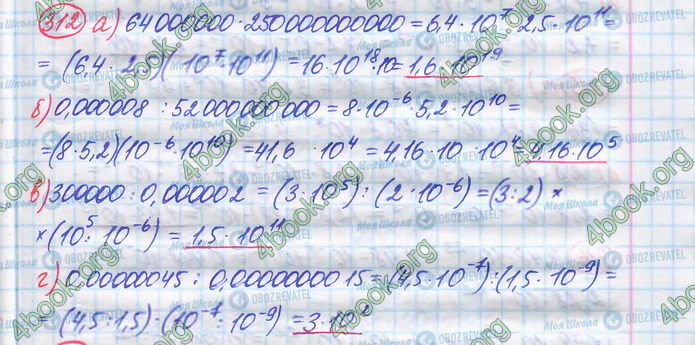 312 а) 64 000000 · 250000000000 = 6,4 · 10⁷ · 2,5 · 10¹¹ =
= (6,4 · 2,5)(10⁷ · 10¹¹) = 16 · 10¹⁸ · 10 = 1,6 · 10¹⁹
б) 0,000008 : 52 000 000 000 = 8 · 10⁻⁶ · 5,2 · 10¹⁰ =
= (8 · 5,2)(10⁻⁶ · 10¹⁰) = 41,6 · 10⁴ = 4,16 · 10 · 10⁴ = 4,16 · 10⁵
в) 300000 : 0,000002 = (3 · 10⁵) : (2 · 10⁻⁶) = (3 : 2) ×
× (10⁵ : 10⁻⁶) = 1,5 · 10¹¹
г) 0,00000045 : 0,0000000015 = (4,5 · 10⁻⁷) : (1,5 · 10⁻⁹) =
= (4,5 : 1,5) · (10⁻⁷ : 10⁻⁹) = 3 · 10²
4book.org
Моя Школа
OBOZREVATEL